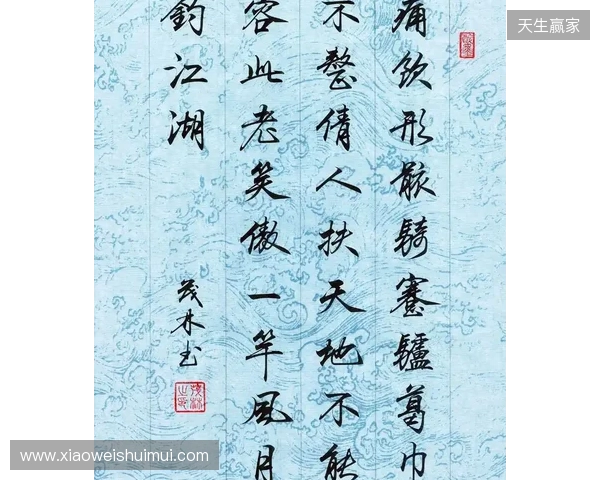 痛飲形骸騎蹇驢葛巾
不整倩人扶天地不能
容此老笑傲一竿風月
釣江湖
茂林书
天生赢家
www.xiaoweishuimui.com